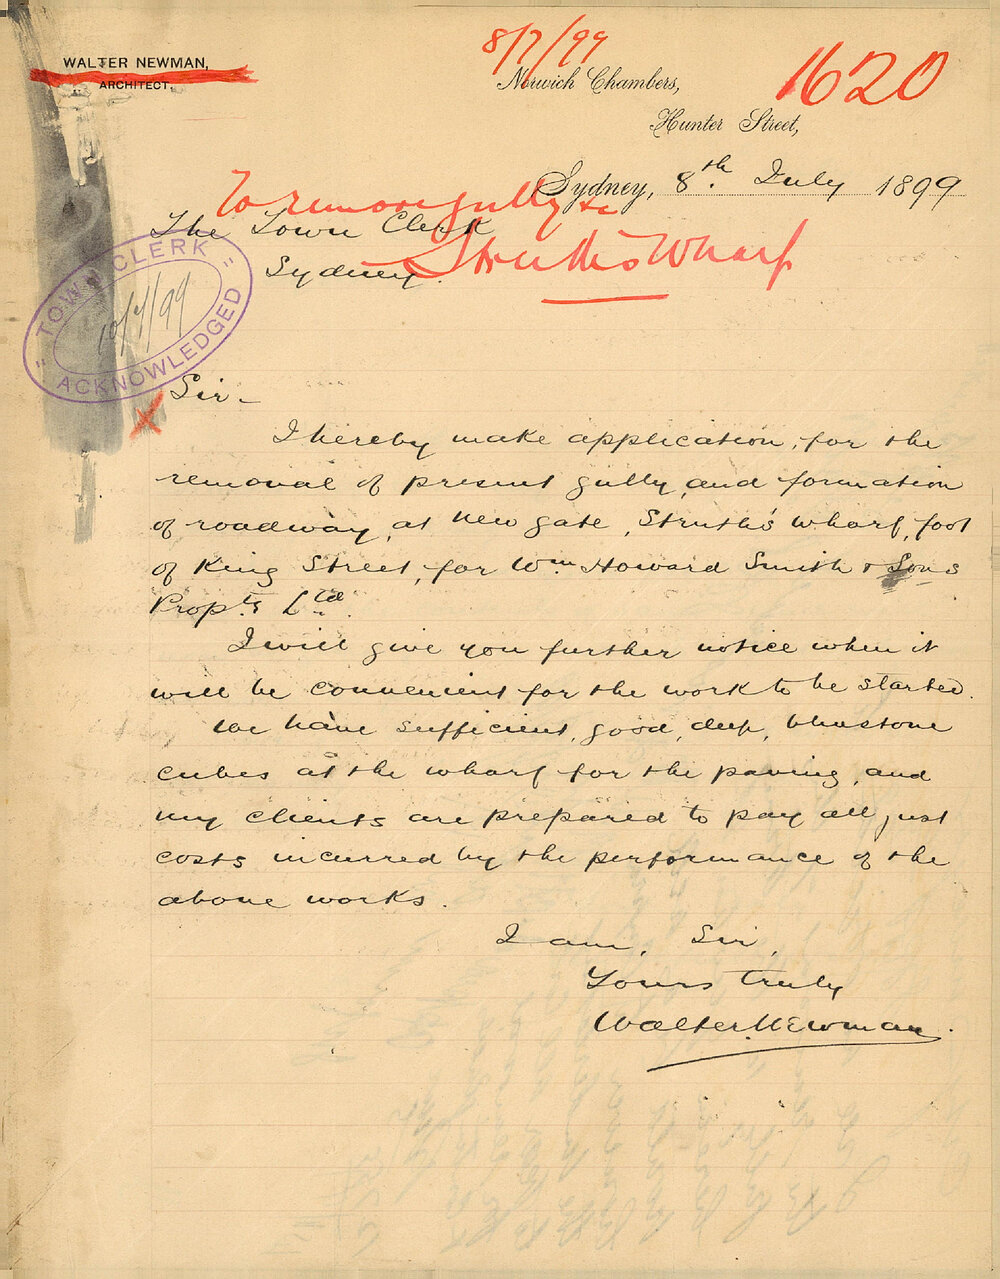 WALTER NEWMAN,
ARCHITECT.
8/7/99
Norwich Chambers,
Hunter Street,
1620
Sydney, 8th July 1899
To remove gully &c
Struth's Wharf
The Town Clerk
Sydney.
"TOWN CLERK"
10/7/99
ACKNOWLEDGED
X
Sir –
I hereby make application, for the
removal of present gully, and formation
of roadway, at new gate, Struth's wharf, foot
of King Street, for Wm Howard Smith & Sons
Propts Ltd.
I will give you further notice when it
will be convenient for the work to be started.
We have sufficient, good, deep, bluestone
cubes at the wharf for the paving, and
my clients are prepared to pay all just
costs incurred by the performance of the
above works.
I am, Sir,
Yours truly
Walter Newman.